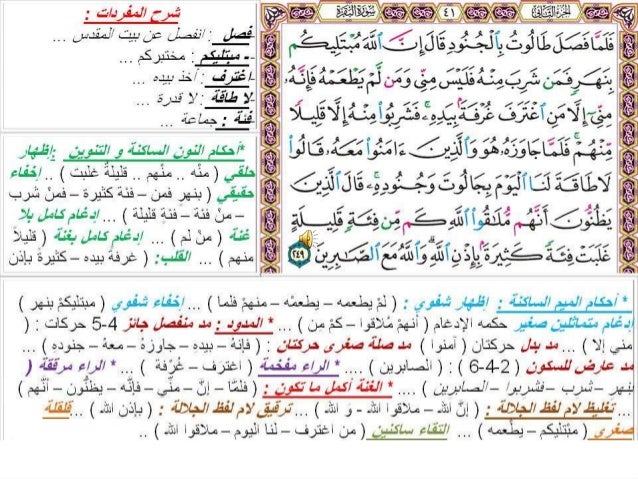 الجزء الثاني
٤١
سورة البقرة
فَلَمَّا فَصَلَ طَالُوتُ بِٱلْجُنُودِ قَالَ إِنَّ ٱللَّهَ مُبْتَلِيكُم
بِنَهَرٍ فَمَن شَرِبَ مِنْهُ فَلَيْسَ مِنِّي وَمَن لَّمْ يَطْعَمْهُ فَإِنَّهُۥ
مِنِّيٓ إِلَّا مَنِ ٱغْتَرَفَ غُرْفَةًۢ بِيَدِهِۦ ۚ فَشَرِبُوا۟ مِنْهُ إِلَّا قَلِيلًا
مِّنْهُمْ ۚ فَلَمَّا جَاوَزَهُۥ هُوَ وَٱلَّذِينَ ءَامَنُوا۟ مَعَهُۥ قَالُوا۟
لَا طَاقَةَ لَنَا ٱلْيَوْمَ بِجَالُوتَ وَجُنُودِهِۦ ۚ قَالَ ٱلَّذِينَ
يَظُنُّونَ أَنَّهُم مُّلَٰقُوا۟ ٱللَّهِ كَم مِّن فِئَةٍ قَلِيلَةٍ
غَلَبَتْ فِئَةً كَثِيرَةًۢ بِإِذْنِ ٱللَّهِ ۗ وَٱللَّهُ مَعَ ٱلصَّٰبِرِينَ ٢٤٩
شرح المفردات :
فصل : انفصل عن بيت المقدس ...
- مبتليكم : مختبركم ...
-اغترف : أخذ بيده ...
-لا طاقة : لا قدرة ...
فئة : جماعة ...
*أحكام النون الساكنة و التنوين :إظهار
حلقي ( منْه .. منْهم .. قليلةً غلبت ) .. إخفاء
حقيقي ( بنهرٍ فمن – فئة كثيرة – فمنْ شرب
– منْ فئة – فئةٍ قليلة ) ... إدغام كامل بلا
غنة ( منْ لم ) ... إدغام كامل بغنة ( قليلاً
منهم ) ... القلب: ( غرفةً بيده – كثيرةً بإذن
* أحكام الميم الساكنة : إظهار شفوي : ( لمْ يطعمه – يطعمْه – منهمْ فلما ) ... إخفاء شفوي ( مبتليكمْ بنهر )
إدغام متماثلين صغير حكمه الإدغام ( أنهمْ مُلاقوا – كمْ من ) ... * المدود : مد منفصل جائز 4-5 حركات : (
مني إلا ) ... مد بدل حركتان ( آمنوا ) مد صلة صغرى حركتان : ( فإنهُ – بيده – جاوزهُ – معهُ – جنوده ) ...
مد عارض للسكون ( 2-4-6 ) : ( الصابرين ) .... * الراء مفخمة ( اغترف – غُرْفة ) ... * الراء مرققة (
بنهر – شرب – فشربوا – الصابرين ) .... * الغنة أكمل ما تكون : ( فلمَّا – إنَّ – منِّي – فإنَّه – يظنُّون – أنَّهم )
... تغليظ لام لفظ الجلالة : ( إنَّ الله – ملاقوا الله - و الله ) ... ترقيق لام لفظ الجلالة : ( بإذن الله ) ... قلقلة
صغرى ( مبْتليكم – يطْعمه ) ... التقاء ساكنين ( من اغترف – لنا اليوم – ملاقوا الله ) ..